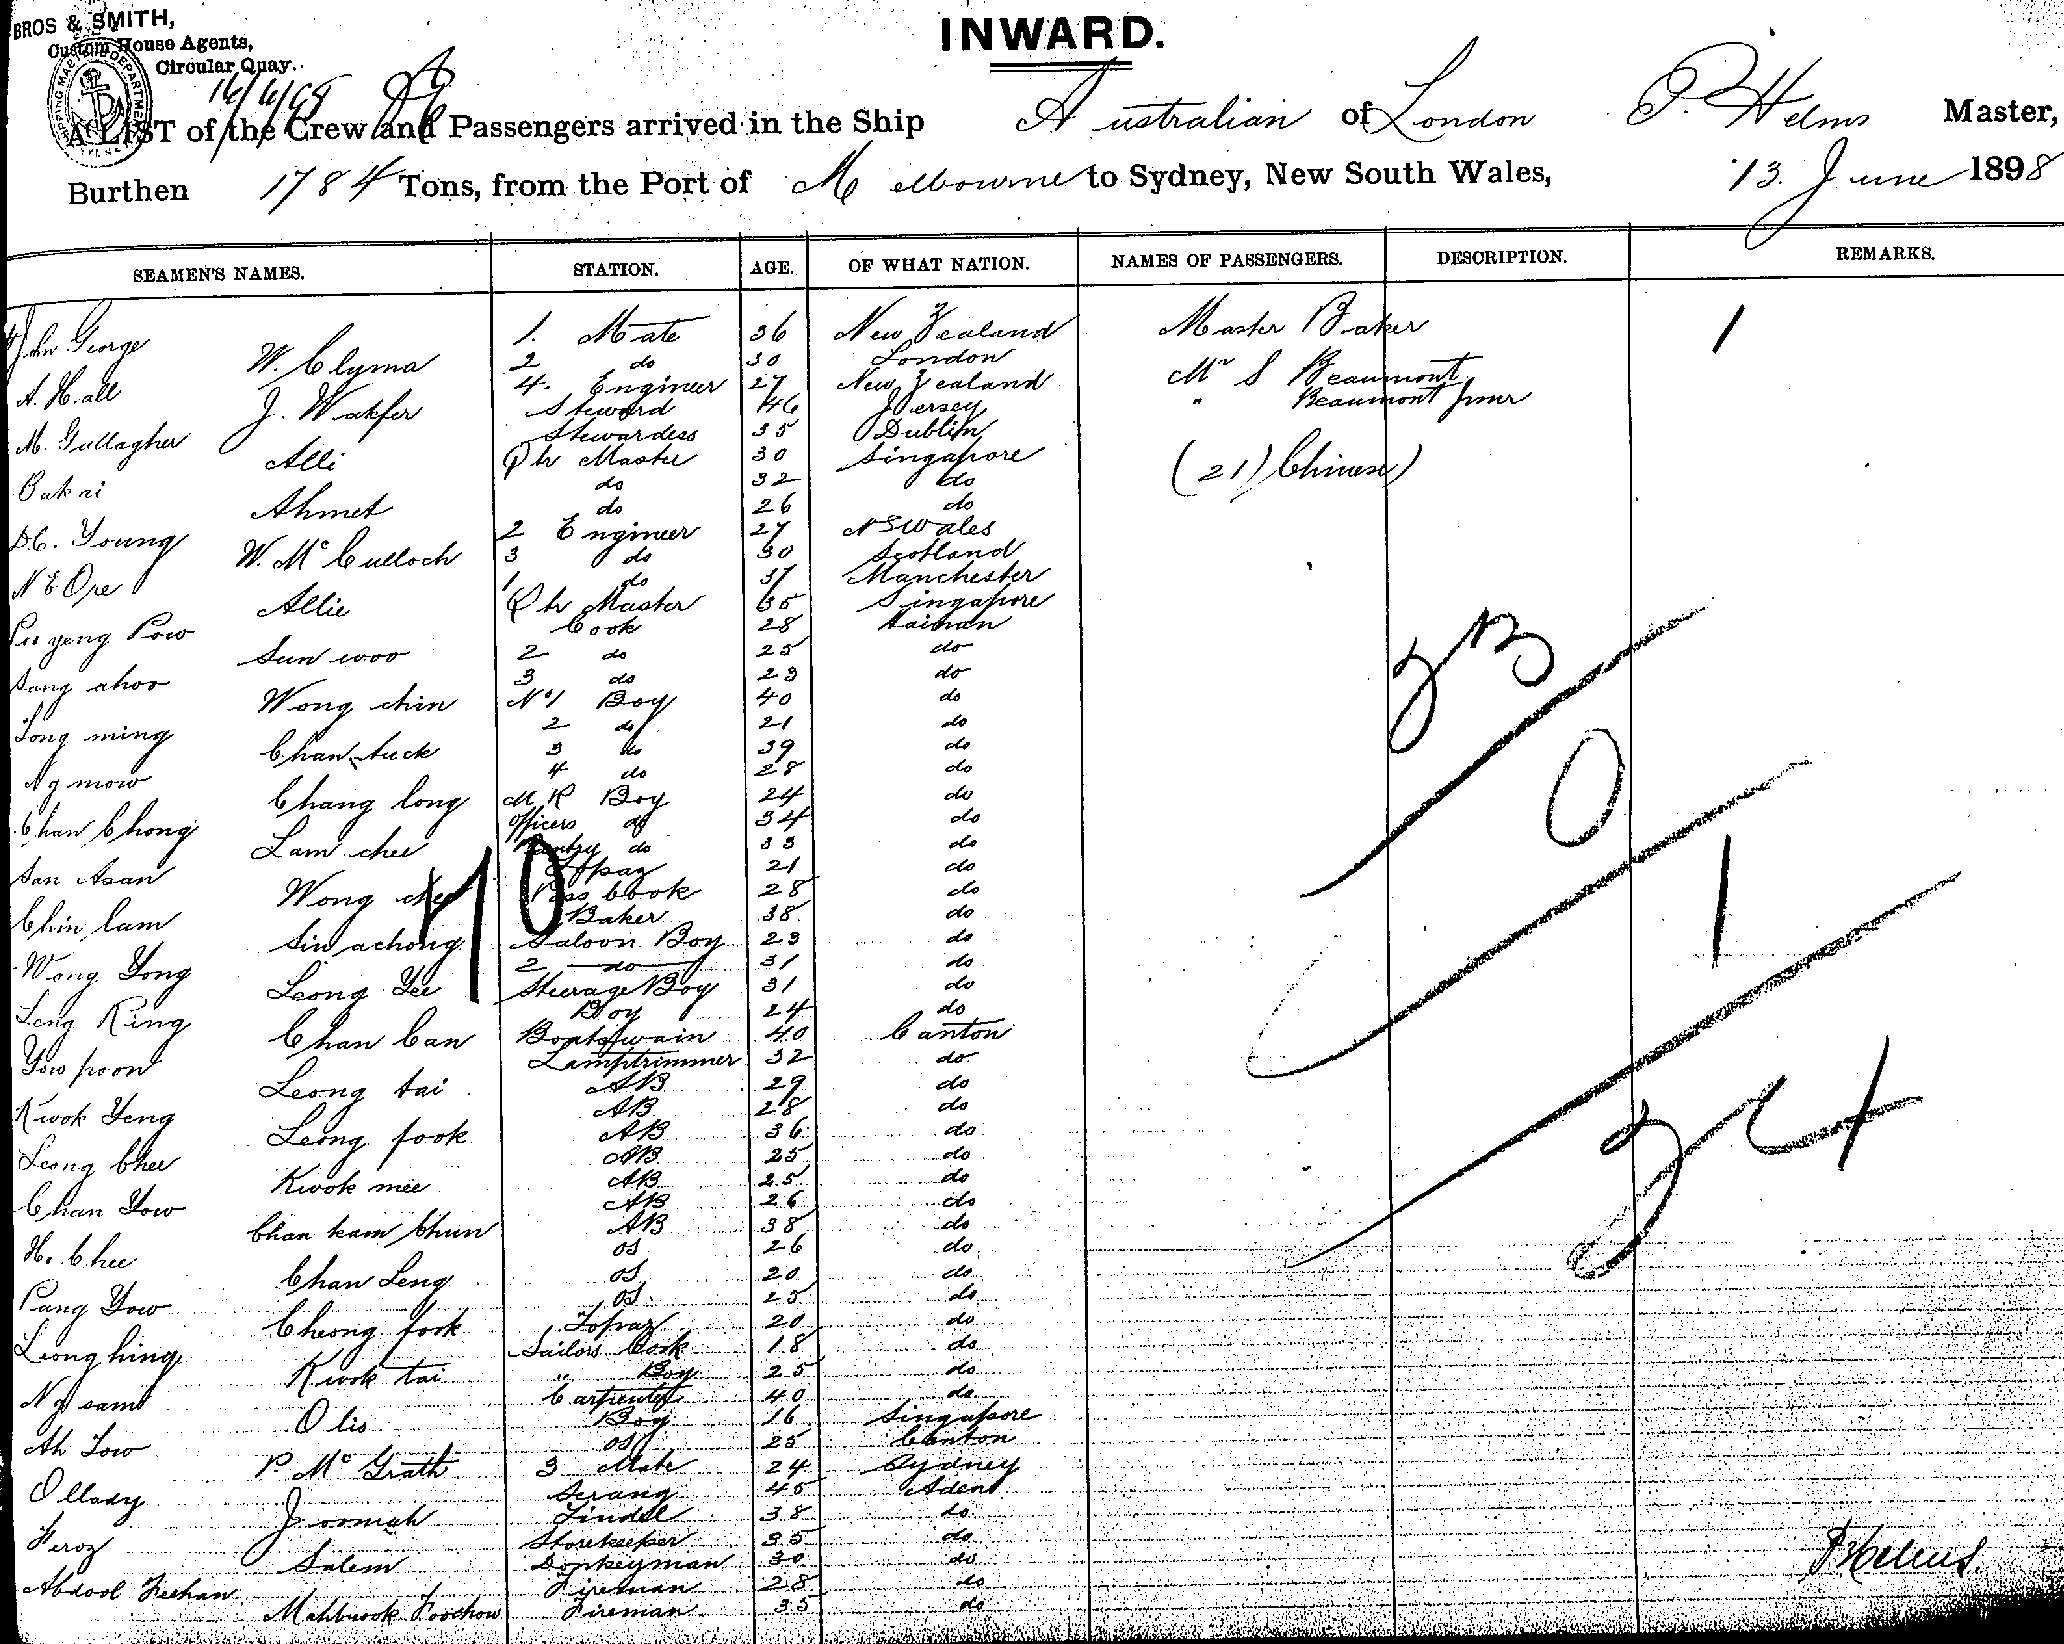 BROS & SMITH,
Custom House Agents,
Circular Quay.
16/6/98
INWARD.
A LIST of the Crew and Passengers arrived in the Ship Australian of London P. Helms Master,
Burthen 1784 Tons, from the Port of Melbourne to Sydney, New South Wales, 13. June 1898
SEAMEN'S NAMES. STATION. AGE. OF WHAT NATION. NAMES OF PASSENGERS. DESCRIPTION. REMARKS.
John George 1. Mate 36 New Zealand Master Baker 1
W. Clyma 2 do 30 London Mr S Beaumont
A. Hall 4. Engineer 27 New Zealand " Beaumont junr
J. Wakfer Steward 46 Jersey
M. Gallagher Stewardess 35 Dublin
Alli Qr Master 30 Singapore (21) Chinese)
Bakai do 32 do
Ahmet do 26 do
DC. Young 2 Engineer 27 NSWales
W. Mc Culloch 3 do 30 Scotland
N E Ore 1 do 37 Manchester
Allie Qr Master 35 Singapore
Pu yeng Pow Cook 28 Hainan
Sun woo 2 do 25 do
Sang ahoo 3 do 23 do
Wong chin No 1 Boy 40 do
Tong ming 2 do 21 do
Chan tuck 3 do 39 do
Ng mow 4 do 28 do
Chang long M R Boy 24 do
Chan Chong Officers do 34 do
Lam chee Pantry do 33 do
San Asan Topaz 21 do
Wong chee Pass Cook 28 do
Chin lam Baker 38 do
Sin achong Saloon Boy 23 do
Wong Yong 2 do 31 do
Leong Yee Steerage Boy 31 do
Leng King Boy 24 do
Chan Can Boatswain 40 Canton
Yow poon Lamptrimmer 32 do
Leong tai AB 29 do
Kwok Yeng AB 28 do
Leong fook AB 36 do
Leong Chee AB 25 do
Kwok mee AB 25 do
Chan Yow AB 26 do
Chan kam Chun AB 38 do
H. Chee OS 26 do
Chan Leng OS 20 do
Pang Yow OS 25 do
Cheong fook Topaz 20 do
Leong hing Sailors Cook 18 do
Kwok tai " Boy 25 do
Ng sam Carpenter 40 do
Olis Boy 16 Singapore
Ah Low OS 25 Canton
P. Mc Grath 3 Mate 24 Sydney
Ollady Serang 45 Aden
Joomah Tindal 38 do
Feroz Storekeeper 35 do
Salem Donkeyman 30 do
Abdool Feehan Fireman 28 do
Mahbrook Foochow Fireman 35 do
10
33
0
1
34
P Helms.